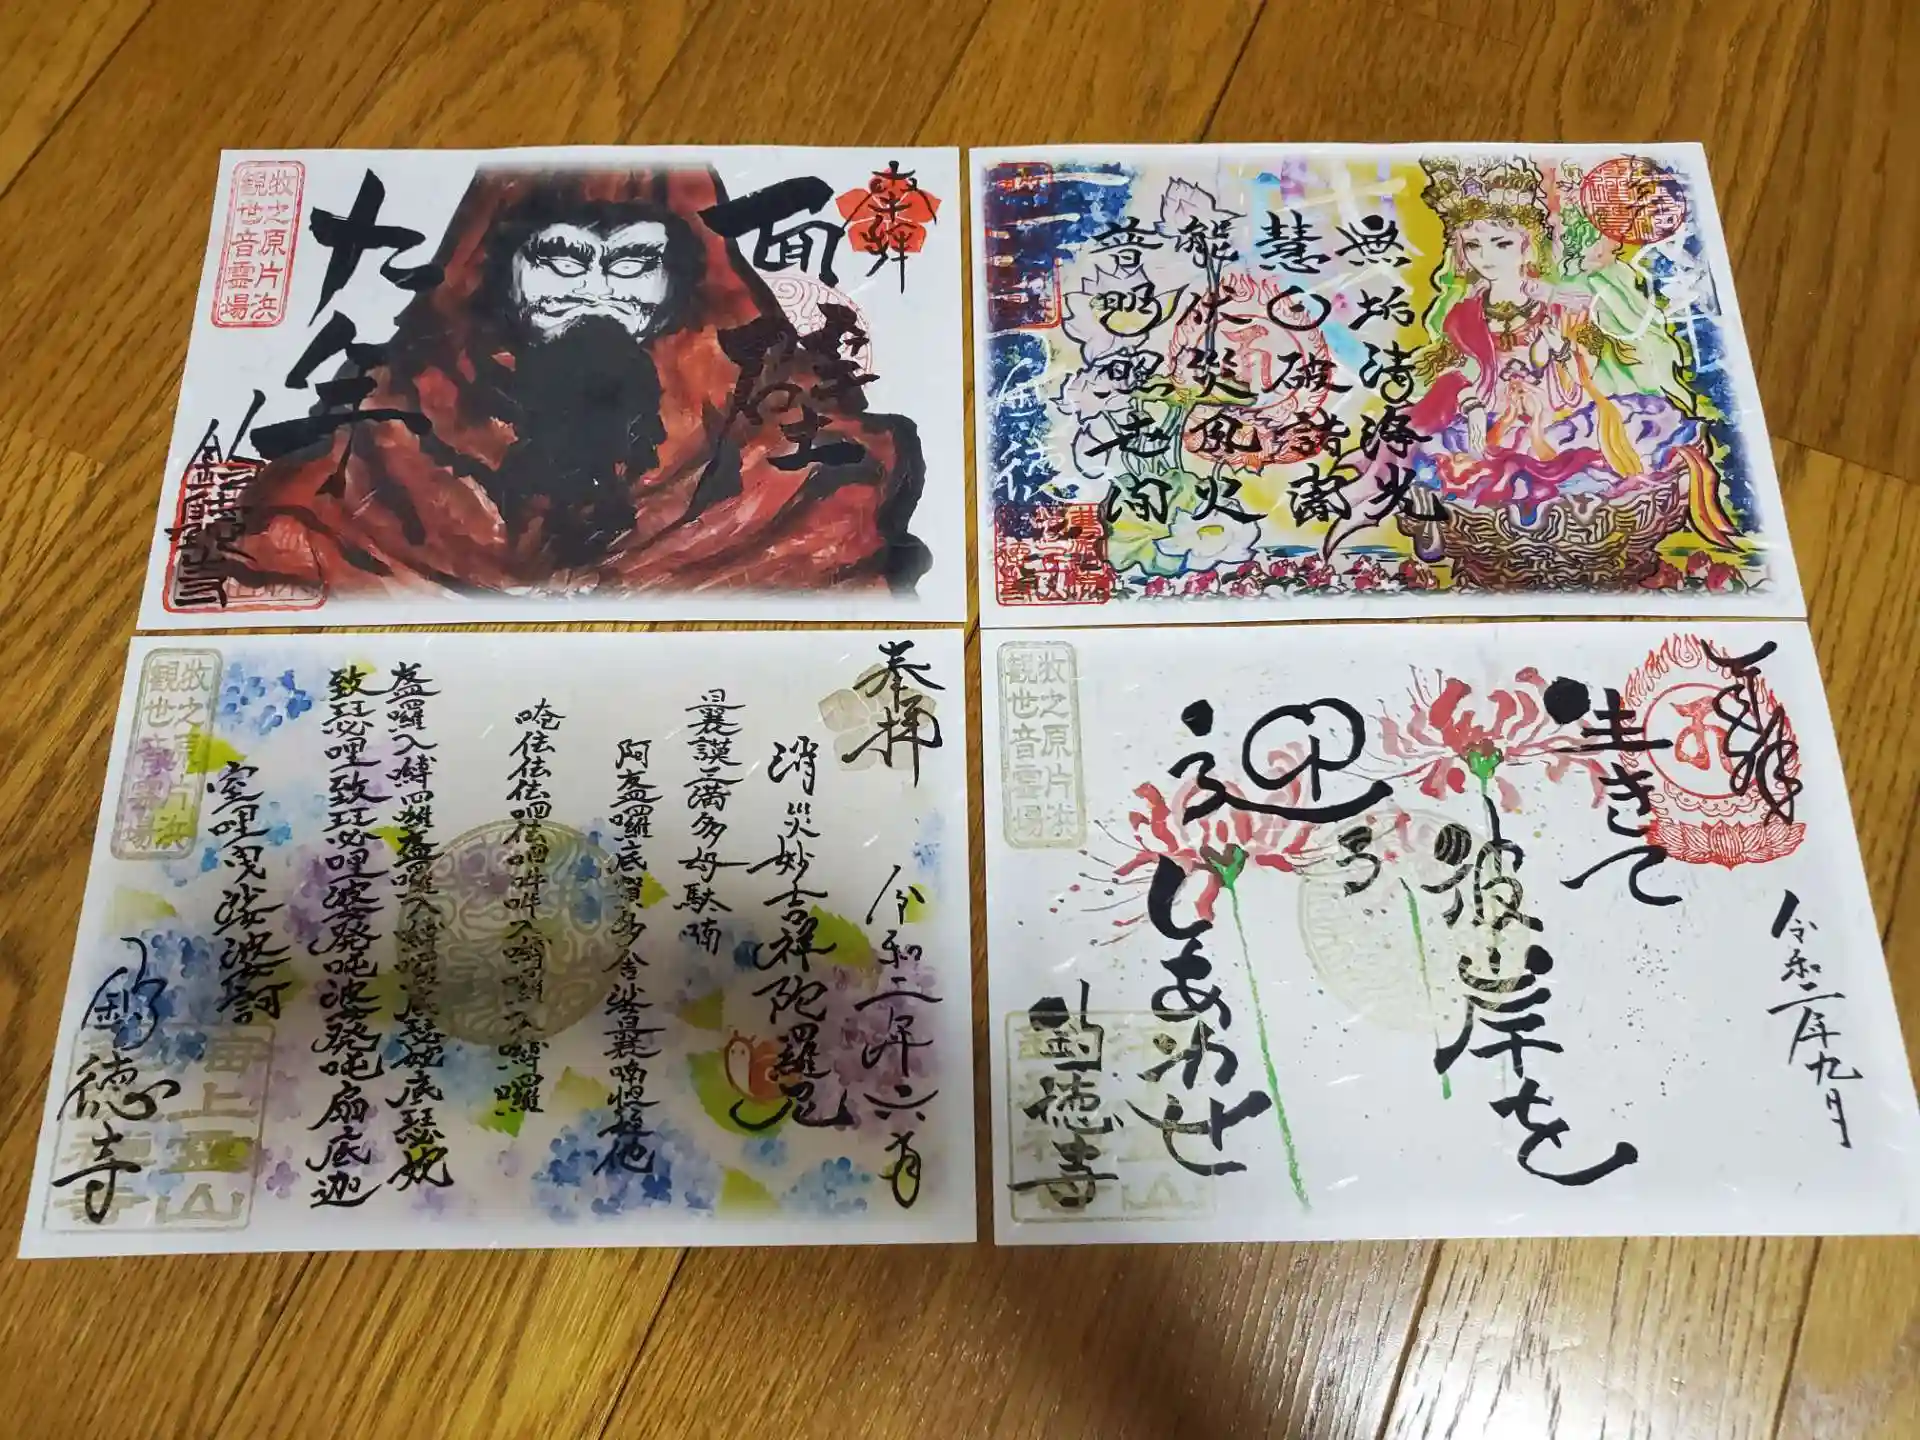 奉拝
面壁
九年
牧之原片浜
観世音霊場
無垢清浄光
慧日破諸闇
能伏災風火
普明照世間
奉拝
令和二年六月
消災妙吉祥陀羅尼
曩謨三満多母駄喃
阿盋囉底賀多舍娑曩喃怛姪他
唵佉佉佉呬佉呬吽吽入嚩囉入嚩囉
盋囉入嚩囉盋囉入嚩囉底瑟姹底瑟姹
致瑟哩致瑟哩婆發吒婆發吒扇底迦
室哩曳娑婆訶
釣徳寺
牧之原片浜
観世音霊場
海上山
令和二年九月
生きて
彼岸を
迎える
しあわせ
釣徳寺
牧之原片浜
観世音霊場